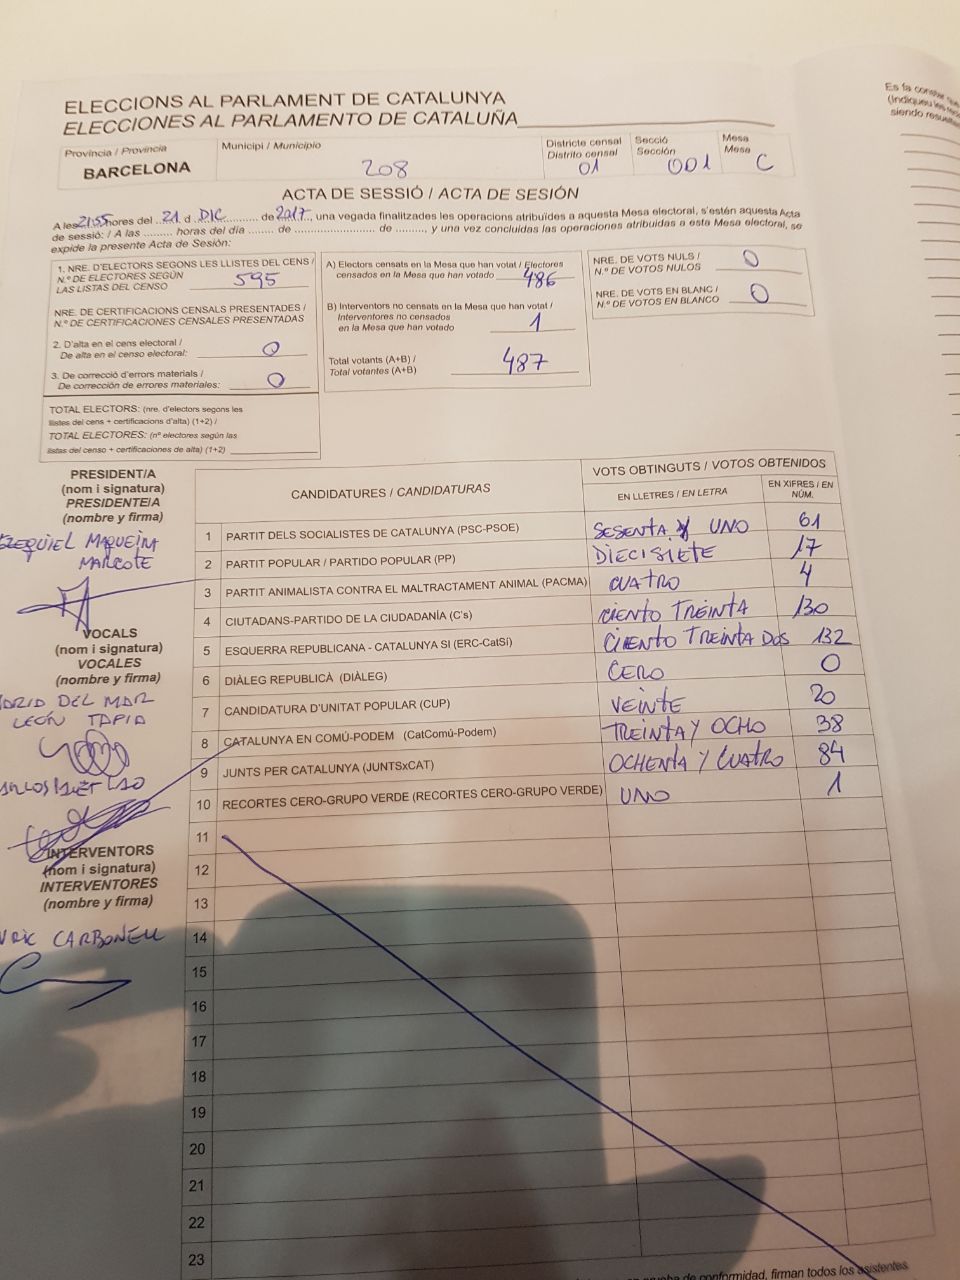 ELECCIONS AL PARLAMENT DE CATALUNYA
ELECCIONES AL PARLAMENTO DE CATALUÑA
Es fa constar que
(Indiqueu les
siendo
Província / Provincia
BARCELONA
Municipi / Municipio
208
Districte censal
Distrito censal
01
Secció
Sección
001
Mesa
Mesa
C
ACTA DE SESSIÓ / ACTA DE SESIÓN
A les 21:55 hores del 21 d DIC de 2017, una vegada finalitzades les operacions atribuïdes a aquesta Mesa electoral, s'estén aquesta Acta
de sessió: / A las ......... horas del día ........ de ........................ de ........., y una vez concluidas las operaciones atribuidas a esta Mesa electoral, se
expide la presente Acta de Sesión:
1. NRE. D'ELECTORS SEGONS LES LLISTES DEL CENS /
N.º DE ELECTORES SEGÚN
LAS LISTAS DEL CENSO 595
NRE. DE CERTIFICACIONS CENSALS PRESENTADES /
N.º DE CERTIFICACIONES CENSALES PRESENTADAS
2. D'alta en el cens electoral /
De alta en el censo electoral: 0
3. De correcció d'errors materials /
De corrección de errores materiales: 0
TOTAL ELECTORS: (nre. d'electors segons les
llistes del cens + certificacions d'alta) (1+2) /
TOTAL ELECTORES: (nº electores según las
listas del censo + certificaciones de alta) (1+2)
A) Electors censats en la Mesa que han votat / Electores
censados en la Mesa que han votado 486
B) Interventors no censats en la Mesa que han votat /
Interventores no censados
en la Mesa que han votado 1
Total votants (A+B) /
Total votantes (A+B) 487
NRE. DE VOTS NULS /
N.º DE VOTOS NULOS 0
NRE. DE VOTS EN BLANC /
N.º DE VOTOS EN BLANCO 0
PRESIDENT/A
(nom i signatura)
PRESIDENTE/A
(nombre y firma)
EZEQUIEL MAQUEIRA
MARCOTE
VOCALS
(nom i signatura)
VOCALES
(nombre y firma)
DEL MAR
LEÓN TAPIA
INTERVENTORS
(nom i signatura)
INTERVENTORES
(nombre y firma)
CARBONELL
CANDIDATURES / CANDIDATURAS
VOTS OBTINGUTS / VOTOS OBTENIDOS
EN LLETRES / EN LETRA
EN XIFRES / EN
NÚM.
1 PARTIT DELS SOCIALISTES DE CATALUNYA (PSC-PSOE) SESENTA Y UNO 61
2 PARTIT POPULAR / PARTIDO POPULAR (PP) DIECISIETE 17
3 PARTIT ANIMALISTA CONTRA EL MALTRACTAMENT ANIMAL (PACMA) CUATRO 4
4 CIUTADANS-PARTIDO DE LA CIUDADANÍA (C's) CIENTO TREINTA 130
5 ESQUERRA REPUBLICANA - CATALUNYA SI (ERC-CatSí) CIENTO TREINTA DOS 132
6 DIÀLEG REPUBLICÀ (DIÀLEG) CERO 0
7 CANDIDATURA D'UNITAT POPULAR (CUP) VEINTE 20
8 CATALUNYA EN COMÚ-PODEM (CatComú-Podem) TREINTA Y OCHO 38
9 JUNTS PER CATALUNYA (JUNTSxCAT) OCHENTA Y CUATRO 84
10 RECORTES CERO-GRUPO VERDE (RECORTES CERO-GRUPO VERDE) UNO 1
11
12
13
14
15
16
17
18
19
20
21
22
23
de conformidad, firman todos los asistentes